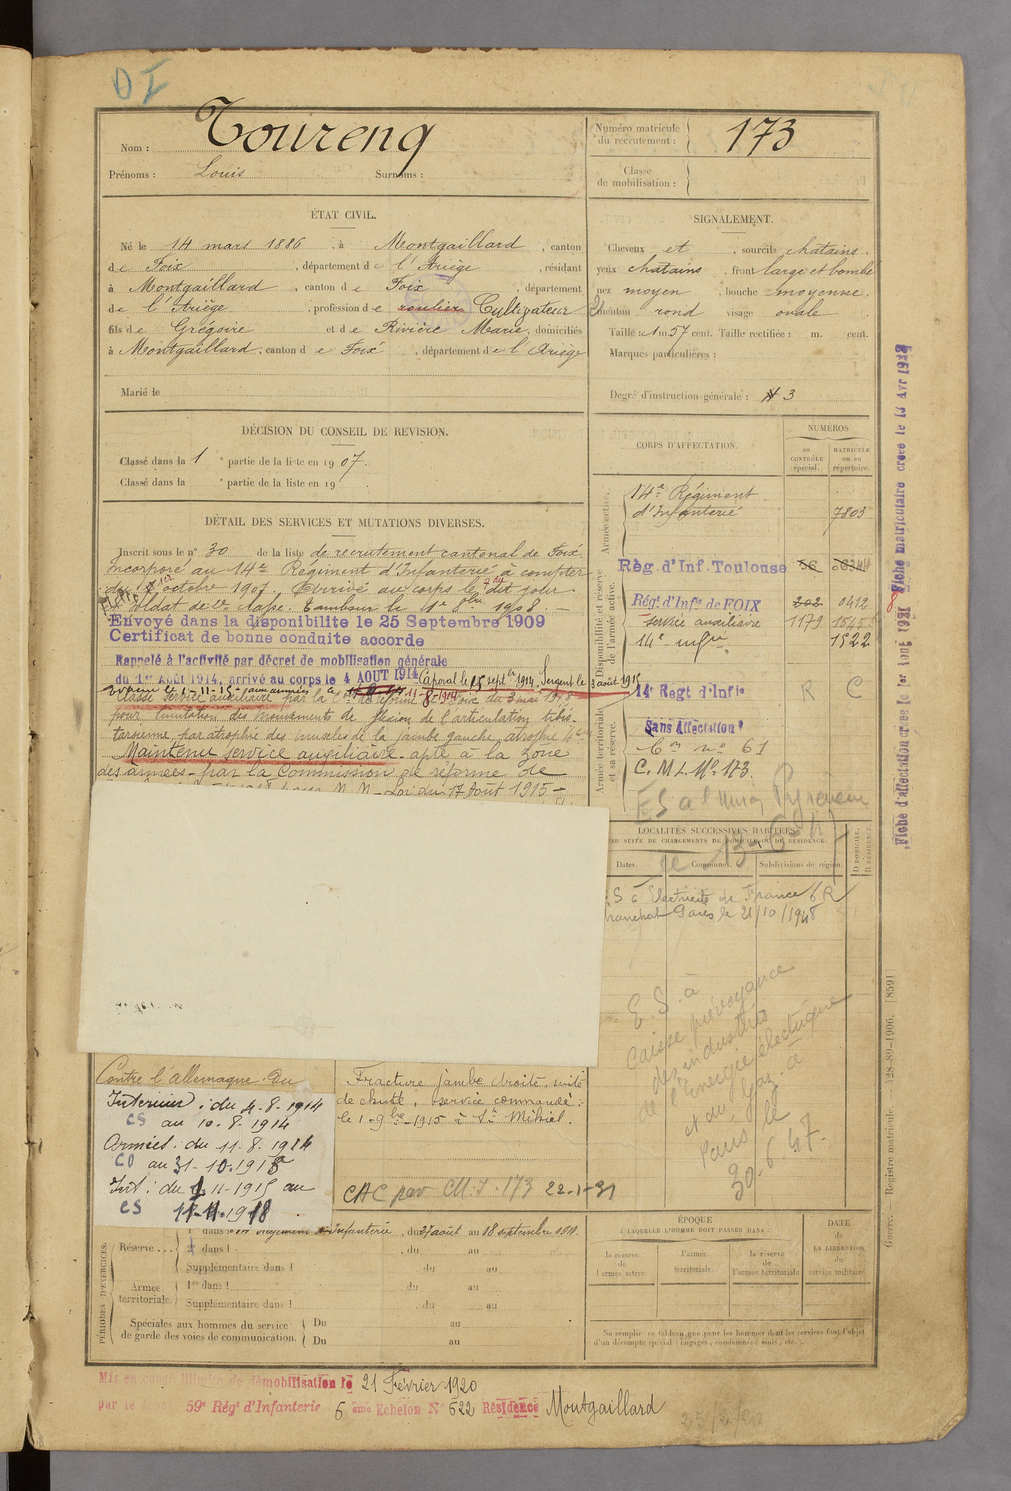 DI
Nom : Tourenq
Prénoms : Louis Surnoms :
Numéro matricule du recrutement : 173
Classe de mobilisation :
ÉTAT CIVIL.
Né le 14 mars 1886, à Montgaillard, canton
de Foix, département de l'Ariège, résidant
à Montgaillard, canton de Foix, département
de l'Ariège, profession de roulier Cultivateur
fils de Grégoire et de Rivière Marie, domiciliés
à Montgaillard, canton de Foix, département de l'Ariège
Marié le
SIGNALEMENT.
Cheveux et, sourcils chatains.
yeux chatains, front large et bombé
nez moyen, bouche moyenne,
menton rond visage ovale
Taille : 1 m. 57 cent. Taille rectifiée : m. cent.
Marques particulières :
Degré d'instruction générale : 3
DÉCISION DU CONSEIL DE REVISION.
Classé dans la 1 e partie de la liste en 1907.
Classé dans la e partie de la liste en 19
DÉTAIL DES SERVICES ET MUTATIONS DIVERSES.
Inscrit sous le n° 30 de la liste de recrutement cantonal de Foix.
Incorporé au 14e Régiment d'Infanterie à compter
du octobre 1907, Arrivé au corps le dit jour
Soldat de 2e classe. Tambour le 1908.
Envoyé dans la disponibilite le 25 Septembre 1909
Certificat de bonne conduite accorde
Rappelé à l'activité par décret de mobilisation générale
du 1er Août 1914, arrivé au corps le 4 AOUT 1914 Caporal le 15 sept bre 1914, Sergent le 3 août 1915
Classé service auxiliaire par la Con de réforme de Foix du 3 mai 1918
pour limitation des mouvements de flexion de l'articulation tibio-
tarsienne, par atrophie des muscles de la jambe gauche, atrophie
Maintenu service auxiliaire apte à la zone
des armées par la Commission de réforme de
Loi du 17 Août 1915
CORPS D'AFFECTATION.
NUMÉROS
AU CONTRÔLE spécial.
MATRICULE OU AU répertoire.
Armée active.
14e Régiment
d'Infanterie 7803
Disponibilité et réserve de l'armée active.
Rég. d'Inf. Toulouse
Régt d'Infie de FOIX 0412
Service auxiliaire 1179
14e infie 1522
Armée territoriale et sa réserve.
14e Regt d'Infie R C
Sans Affectation
Con no 61
C. M I. No 173
LOCALITÉS SUCCESSIVES HABITÉES
PAR SUITE DE CHANGEMENTS DE DOMICILE OU DE RÉSIDENCE.
Dates. Communes. Subdivisions de région. D DOMICILE. R RÉSIDENCE.
E S à Electricité de France
Paris le 21/10/1948
E.S. à
Caisse prévoyance
des industries
de l'Energie électrique
et du Gaz à
Paris le
30.6.47.
Contre l'allemagne du
Intérieur : du 4.8.1914
CS au 10.8.1914
Armées : du 11.8.1914
CD au 31-10-1915
Int : du 1-11-1915 au
CS 11-11-1918
Fracture jambe droite, suite
de chute, service commandé :
le 1-9bre-1915 à St Mihiel.
CAC par CMI. 173 22-1-31
PÉRIODES D'EXERCICES.
Réserve ... 1re dans Infanterie, du 27 août au 18 septembre 1911.
2e dans l , du au
Supplémentaire dans l , du au
Armée territoriale. 1re dans l , du au
Supplémentaire dans l , du au
Spéciales aux hommes du service de garde des voies de communication. Du au
Du au
ÉPOQUE
À LAQUELLE L'HOMME DOIT PASSER DANS :
la réserve de l'armée active.
l'armée territoriale.
la réserve de l'armée territoriale
DATE de LA LIBÉRATION du service militaire
Ne remplir ce tableau que pour les hommes dont les services font l'objet
d'un décompte spécial (engagés, condamnés, omis, etc.).
Mis en congé illimité de démobilisation le 21 Février 1920
par le dépôt 59e Régt d'Infanterie 5 ème Echelon N° 622 Résidence Montgaillard
Guerre. — Registre matricule. — 328-89-1906. [8591]